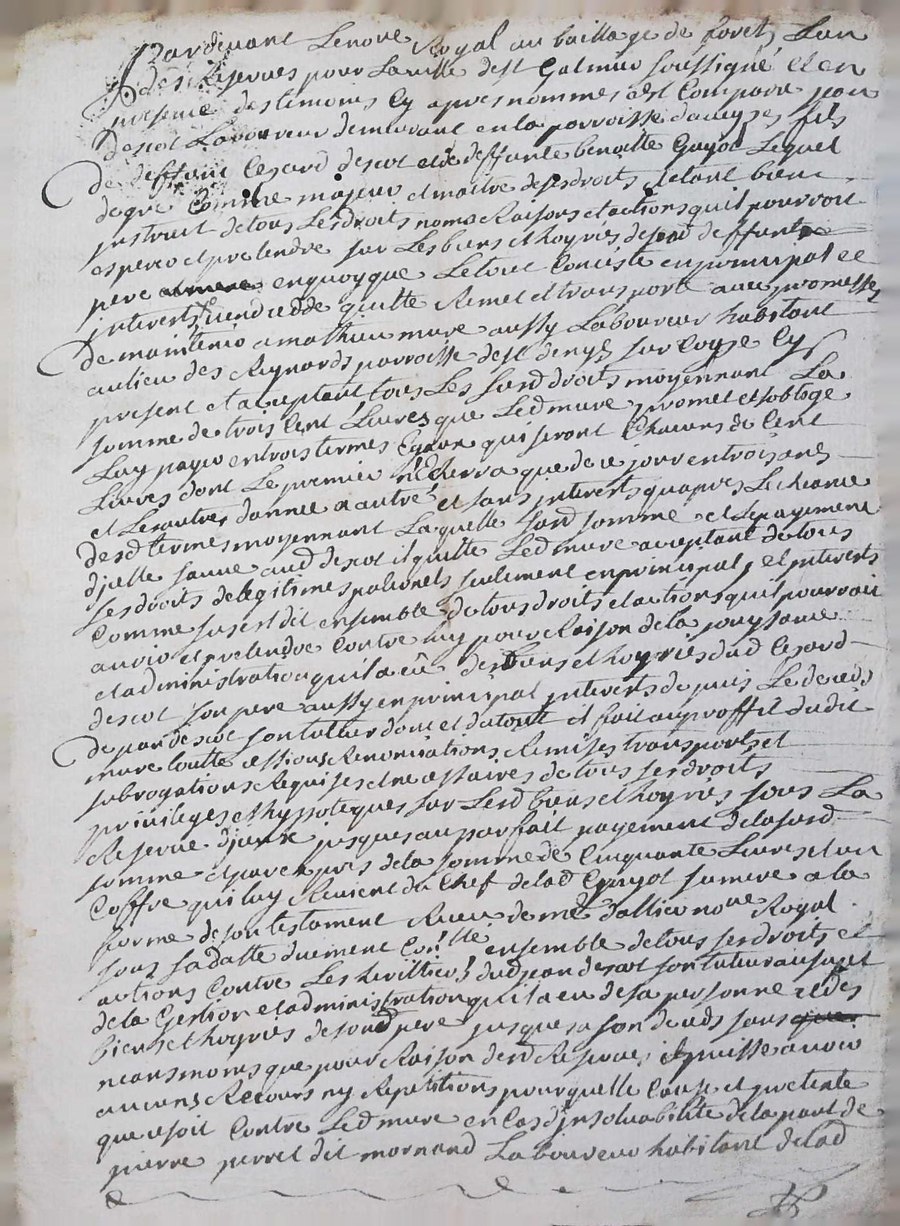 Pardevant Le nore Royal au bailliage de forets, Lun
des Reserves pour La ville de st Galmier soussigné et en
presence des temoins Cy apres nommes est Comparu jean
descot Laboureur demeurant en la parroisse daveyses fils
de deffunt Cesard descot et de deffunte benoitte Guyot Lequel
de gré Comme majeur et maitre de ses droits et etant bien
instruit de tous Les droits noms Raisons et actions quil pourroit
esperer et pretendre sur Les biens et hoyries desd deffunt
pere enquoy que Le tout Conciste en principal et
interets vend cedde quitte Remet et transporte avec promesse
de maintenir a mathieu mure aussy Laboureur habitant
au lieu des Reynards parroisse de st denys sur Coyse Cy
present et acceptant tous Les susd droits moyennant La
somme de trois Cent Livres que Led mure promet et soblige
Luy payer en trois termes Egaux qui seront Chacuns de Cent
Livres dont Le premier Echerra que de ce jour en trois ans
et Les autres dannée a autre et sans interets quapres Lecheance
desd termes moyennant Laquelle susd somme et Le payement
dicelle sauve aud descot il quitte Led mure acceptant de tous
ses droits de legitimes paternels seulement en principal et interets
Comme sus est dit ensemble de tous droits et actions quil pourroit
avoir et pretendre Contre Luy pour Raison de la jouyssance
et administration quil a eû des biens et hoyries dud Cesard
descot son pere aussy en principal interets depuis Le deceds
de jean descot son tuteur dont et du tout il fait au proffit dudit
mure toutte cessions Renonciations Remises transports et
subrogations Requises et necessaires de tous ses droits
privileges et hypoteques sur Lesd biens et hoyries sous La
Reserve diceux jusques au parfait payement de la susd
somme et pareu pres de la somme de Cinquante Livres et un
Coffre qui luy Revient du Chef de lad Guyot sa mere a la
forme de son testament Receu de me dallier nore Royal
sous sa datte duement Conllé ensemble de tous ses droits et
actions Contre Les heritiers dud jean descot son tuteur au sujet
de la Gestion et administration quil a eu de sa personne et des
biens et hoyries de sond pere jusques a son deceds sans
neansmoins que pour Raison desd Reserves il puisse avoir
aucuns Recours ny Repetitions pour quelle Cause et pretexte
que ce soit Contre Led mure en Cas dinsoluabilité de la part de
pierre perret dit mornand Laboureur habitant de lad